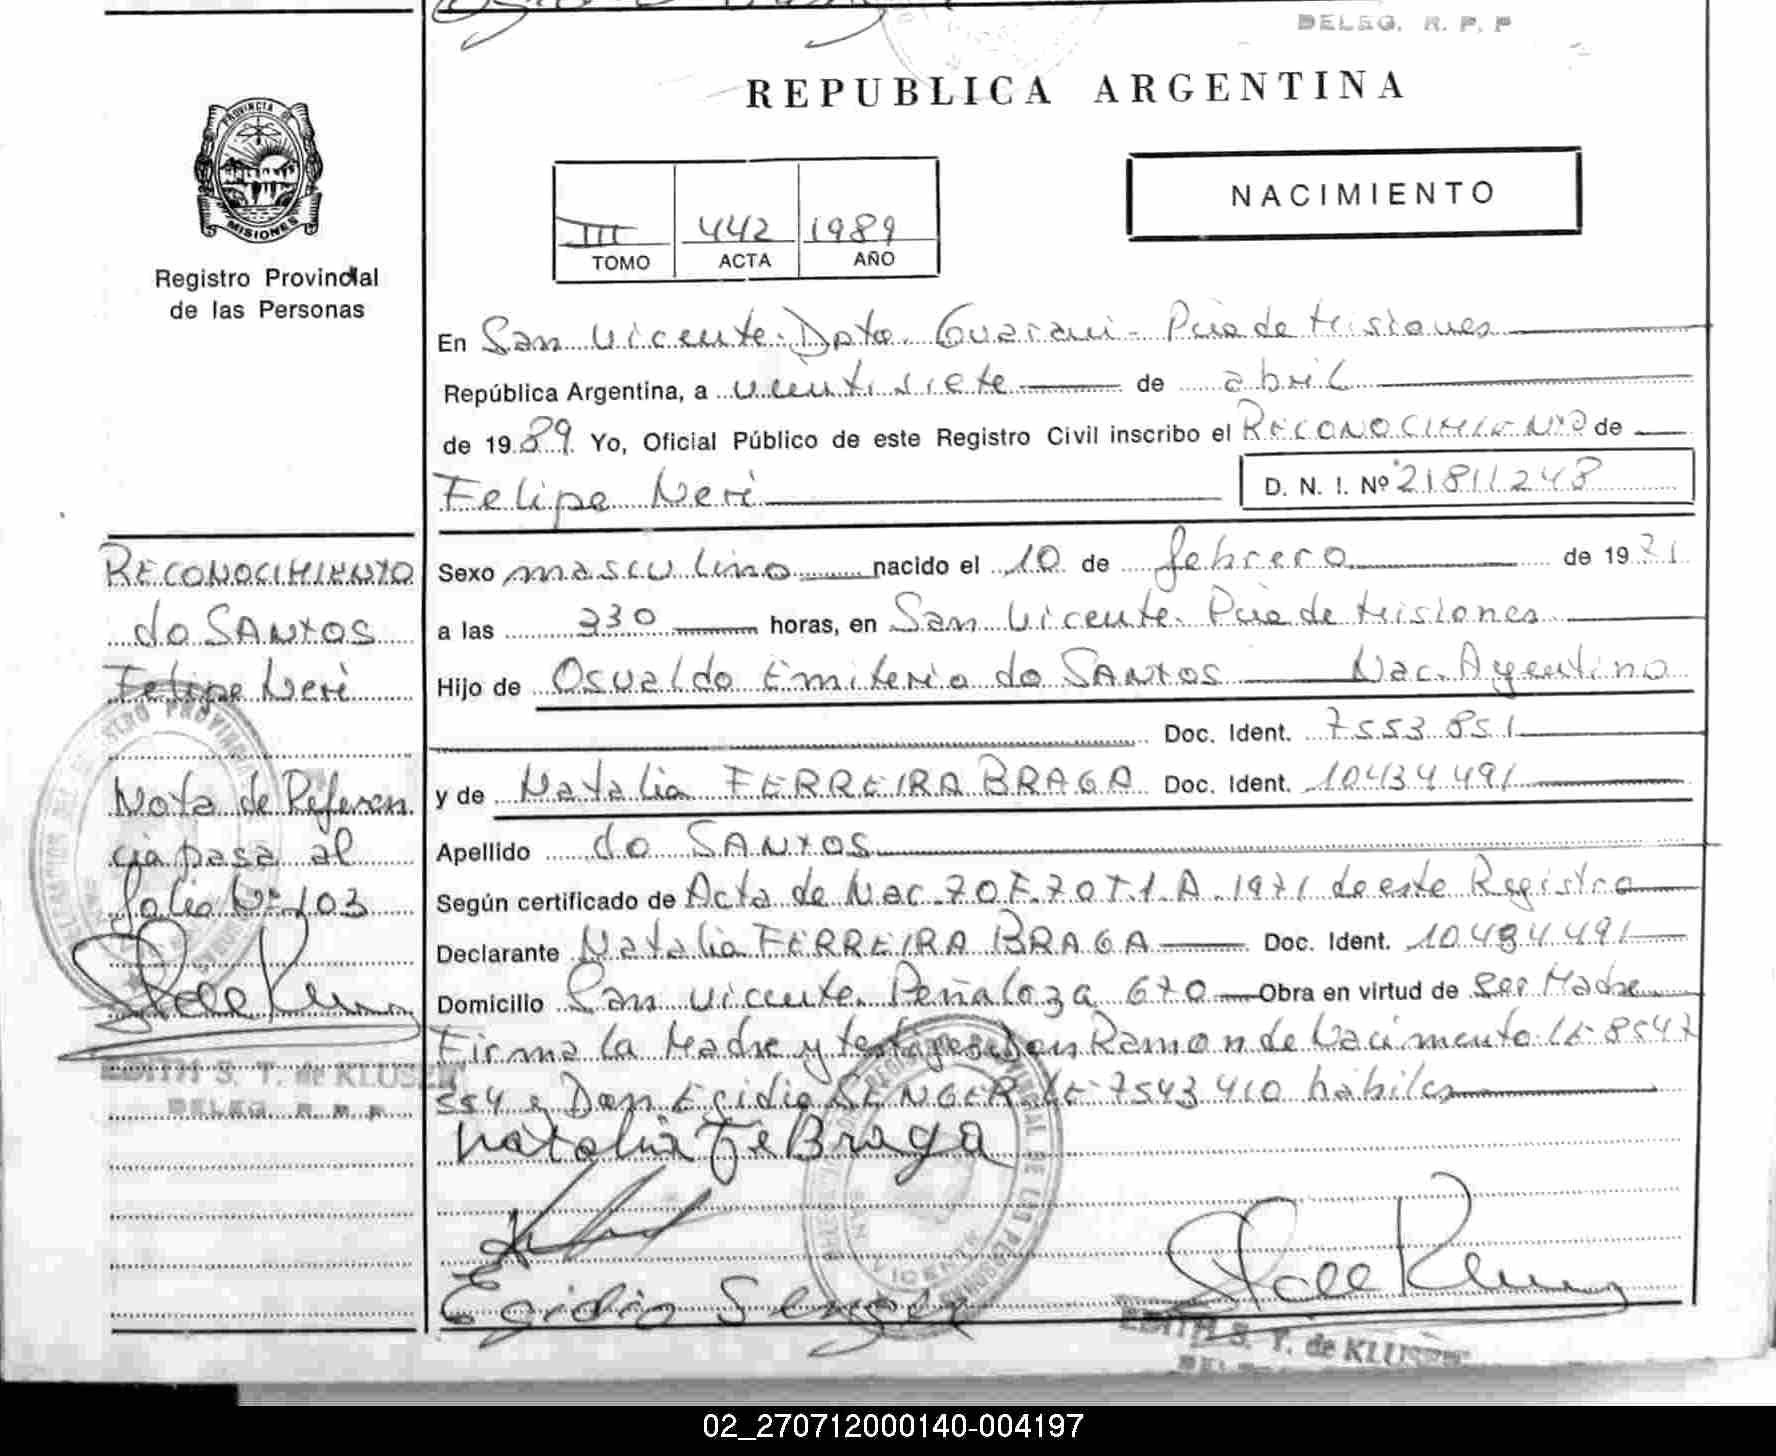 DELEG. R. P. P
REPUBLICA ARGENTINA
PROVINCIA DE
MISIONES
Registro Provincial
de las Personas
NACIMIENTO
III 442 1989
TOMO ACTA AÑO
En San Vicente. Dpto. Guarani - Pcia de Misiones
República Argentina, a veintisiete de abril
de 1989. Yo, Oficial Público de este Registro Civil inscribo el RECONOCIMIENTO de
Felipe Neri D. N. I. Nº 21811248
Sexo masculino nacido el 10 de febrero de 1971
a las 330 horas, en San Vicente. Pcia de Misiones
Hijo de Osvaldo Emiterio do SANTOS Nac. Argentino
Doc. Ident. 7553.851
y de Natalia FERREIRA BRAGA Doc. Ident. 10434.491
Apellido do SANTOS
Según certificado de Acta de Nac. 70 F. 70 T. 1. A. 1971 de este Registro
Declarante Natalia FERREIRA BRAGA Doc. Ident. 10.484.491
Domicilio San Vicente. Peñaloza 670 Obra en virtud de Ser Madre
Firma la Madre y testigos Don Ramon de Nacimento LE 8547
554 y Don Egidio SENGER LE 7543410 hábiles
Natalia Fe Braga
Egidio Senger
EDITH S. T. de KLUSEN
RECONOCIMIENTO
do SANTOS
Felipe Neri
Nota de Referen
cia pasa al
folio Nº 103
EDITH S. T. de KLUSEN
DELEG. R. P. P
02_270712000140-004197